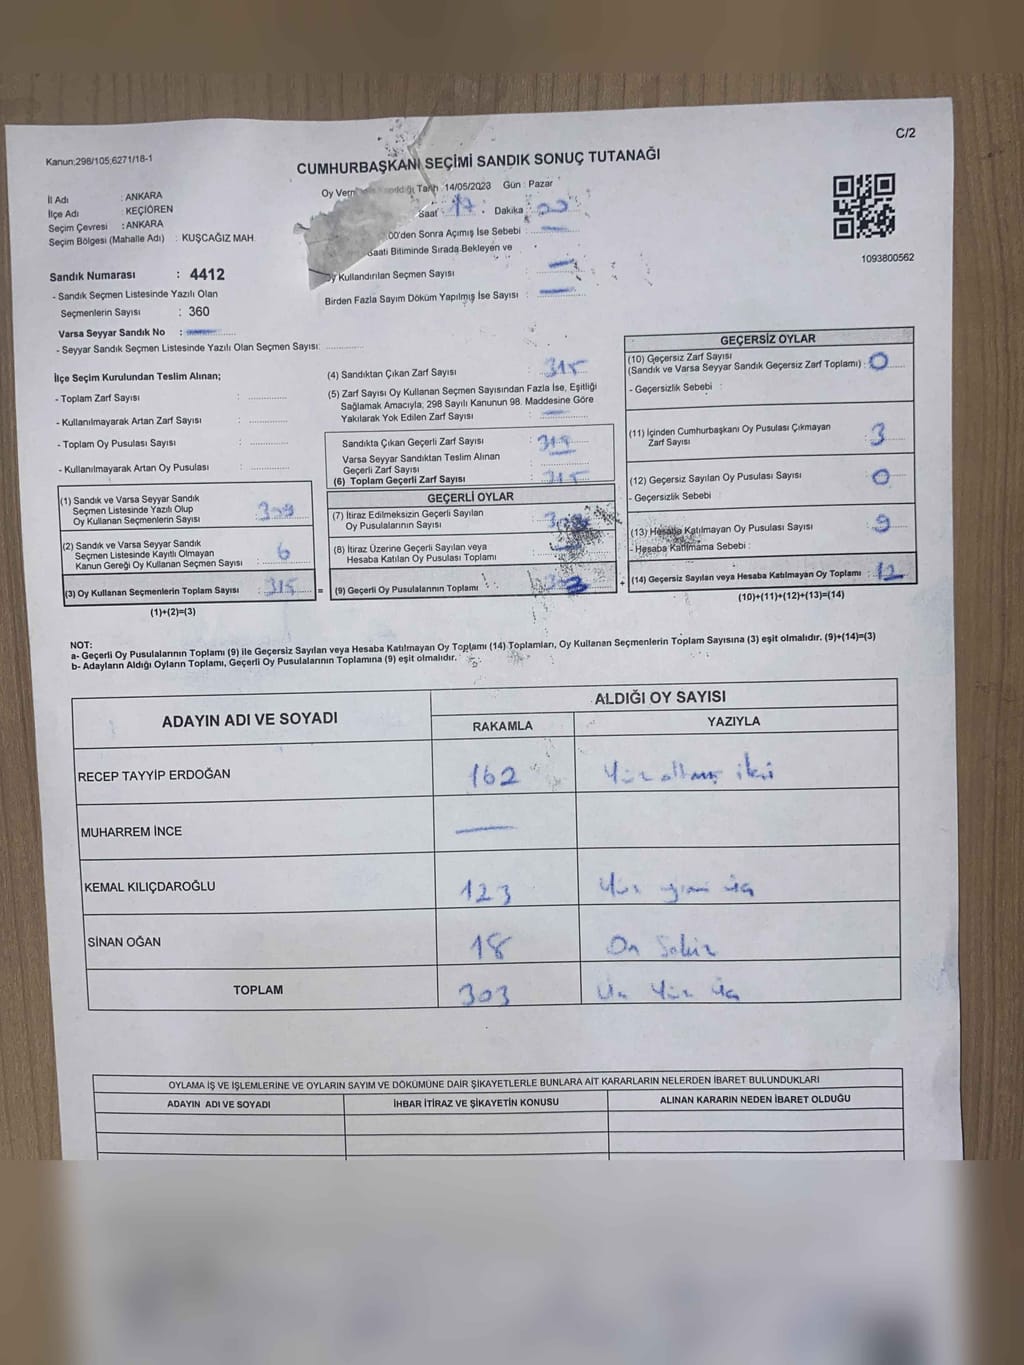 C/2
Kanun;298/105;6271/18-1
CUMHURBAŞKANI SEÇİMİ SANDIK SONUÇ TUTANAĞI
İl Adı : ANKARA
İlçe Adı : KEÇİÖREN
Seçim Çevresi : ANKARA
Seçim Bölgesi (Mahalle Adı) : KUŞCAĞIZ MAH.
Oy Tarih :14/05/2023 Gün : Pazar
Saat : 17 Dakika : 00
00'den Sonra Açımış İse Sebebi : —
Saati Bitiminde Sırada Bekleyen ve
Oy Kullandırılan Seçmen Sayısı : —
Birden Fazla Sayım Döküm Yapılmış İse Sayısı : —
1093800562
Sandık Numarası : 4412
- Sandık Seçmen Listesinde Yazılı Olan
Seçmenlerin Sayısı : 360
Varsa Seyyar Sandık No : —
- Seyyar Sandık Seçmen Listesinde Yazılı Olan Seçmen Sayısı:
İlçe Seçim Kurulundan Teslim Alınan;
- Toplam Zarf Sayısı :
- Kullanılmayarak Artan Zarf Sayısı :
- Toplam Oy Pusulası Sayısı :
- Kullanılmayarak Artan Oy Pusulası :
(1) Sandık ve Varsa Seyyar Sandık
Seçmen Listesinde Yazılı Olup
Oy Kullanan Seçmenlerin Sayısı : 309
(2) Sandık ve Varsa Seyyar Sandık
Seçmen Listesinde Kayıtlı Olmayan
Kanun Gereği Oy Kullanan Seçmen Sayısı : 6
(3) Oy Kullanan Seçmenlerin Toplam Sayısı : 315 =
(1)+(2)=(3)
(4) Sandıktan Çıkan Zarf Sayısı : 315
(5) Zarf Sayısı Oy Kullanan Seçmen Sayısından Fazla İse, Eşitliği
Sağlamak Amacıyla, 298 Sayılı Kanunun 98. Maddesine Göre
Yakılarak Yok Edilen Zarf Sayısı : —
Sandıkta Çıkan Geçerli Zarf Sayısı : 315
Varsa Seyyar Sandıktan Teslim Alınan
Geçerli Zarf Sayısı :
(6) Toplam Geçerli Zarf Sayısı : 315
GEÇERLİ OYLAR
(7) İtiraz Edilmeksizin Geçerli Sayılan
Oy Pusulalarının Sayısı :
(8) İtiraz Üzerine Geçerli Sayılan veya
Hesaba Katılan Oy Pusulası Toplamı :
(9) Geçerli Oy Pusulalarının Toplamı : 303 +
GEÇERSİZ OYLAR
(10) Geçersiz Zarf Sayısı
(Sandık ve Varsa Seyyar Sandık Geçersiz Zarf Toplamı) : 0
- Geçersizlik Sebebi :
(11) İçinden Cumhurbaşkanı Oy Pusulası Çıkmayan
Zarf Sayısı : 3
(12) Geçersiz Sayılan Oy Pusulası Sayısı : 0
- Geçersizlik Sebebi :
(13) Hesaba Katılmayan Oy Pusulası Sayısı : 9
- Hesaba Katılmama Sebebi :
(14) Geçersiz Sayılan veya Hesaba Katılmayan Oy Toplamı : 12
(10)+(11)+(12)+(13)=(14)
NOT:
a- Geçerli Oy Pusulalarının Toplamı (9) ile Geçersiz Sayılan veya Hesaba Katılmayan Oy Toplamı (14) Toplamları, Oy Kullanan Seçmenlerin Toplam Sayısına (3) eşit olmalıdır. (9)+(14)=(3)
b- Adayların Aldığı Oyların Toplamı, Geçerli Oy Pusulalarının Toplamına (9) eşit olmalıdır.
ADAYIN ADI VE SOYADI ALDIĞI OY SAYISI
RAKAMLA YAZIYLA
RECEP TAYYİP ERDOĞAN 162 Yüz altmış iki
MUHARREM İNCE —
KEMAL KILIÇDAROĞLU 123 Yüz yirmi üç
SİNAN OĞAN 18 On Sekiz
TOPLAM 303 Üç Yüz üç
OYLAMA İŞ VE İŞLEMLERİNE VE OYLARIN SAYIM VE DÖKÜMÜNE DAİR ŞİKAYETLERLE BUNLARA AİT KARARLARIN NELERDEN İBARET BULUNDUKLARI
ADAYIN ADI VE SOYADI İHBAR İTİRAZ VE ŞİKAYETİN KONUSU ALINAN KARARIN NEDEN İBARET OLDUĞU